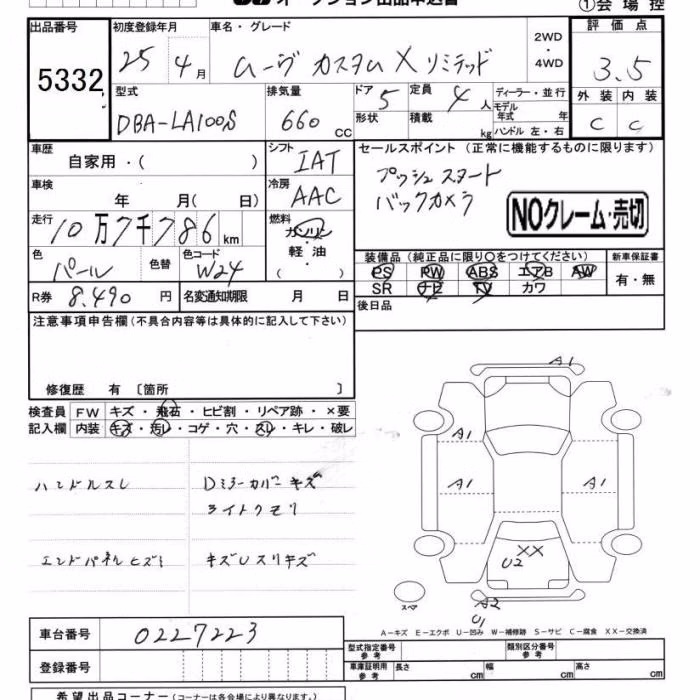 ①会場控
出品番号
5332
初度登録年月
25年4月
車名・グレード
ムーヴ カスタム X リミテッド
2WD
・
4WD
評価点
3.5
外装 内装
C C
型式
DBA-LA100S
排気量
660 cc
ドア 5
定員 4人
形状
積載 kg
ディーラー・並行
モデル年式 年
ハンドル 左・右
車歴
自家用・( )
シフト
IAT
セールスポイント (正常に機能するものに限ります)
プッシュスタート
バックカメラ
NOクレーム・売切
車検
年 月( 日)
冷房
AAC
走行
10万7千786km
燃料
ガソリン
軽・油
( ・ )
色
パール
色替
色コード
W24
装備品(純正品に限り○をつけてください)
新車保証書
PS PW ABS エアB AW
SR ナビ TV カワ
有・無
R券 8,490円
名変通知期限 月 日
後日品
注意事項申告欄(不具合内容等は具体的に記入して下さい)
修復歴 有 〔箇所 〕
検査員 FW キズ・飛石・ヒビ割・リペア跡・×要
記入欄 内装 キズ・汚レ・コゲ・穴・スレ・キレ・破レ
ハンドルスレ
Dミラーカバーキズ
ライトクモリ
エンドパネルヒズミ
キズUスリキズ
A1
A1
A1
A1
XX
U2
A2
U1
スペア
A-キズ E-エクボ U-凹み W-補修跡 S-サビ C-腐食 XX-交換済
車台番号
0227223
登録番号
型式指定番号
参考
類別区分番号
参考
車庫証明用
参考
長さ cm
幅 cm
高さ cm
希望出品コーナー(コーナーは各会場により異なります。)